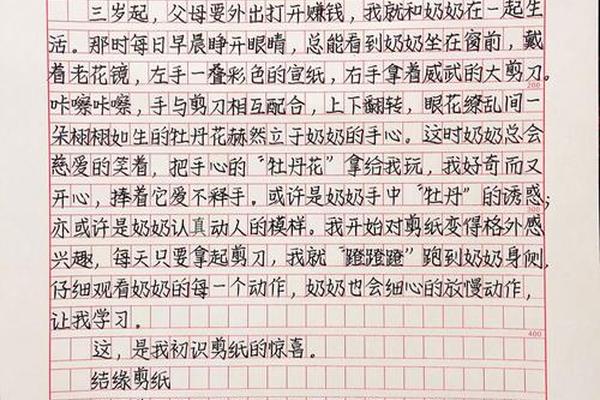 三岁起，父母要外出打开赚钱，我就和奶奶在一起生
活。那时每日早晨睁开眼睛，总能看到奶奶坐在窗前，戴
着老花镜，左手一叠彩色的宣纸，右手拿着威武的大剪刀。
200
咔嚓咔嚓，手与剪刀相互配合，上下翻转，眼花缭乱间一
朵栩栩如生的牡丹花赫然立于奶奶的手心。这时奶奶总会
慈爱的笑着，把手心的“牡丹花”拿给我玩，我好奇而又
开心，捧着它爱不释手。或许是奶奶手中“牡丹”的诱惑；
300
亦或许是奶奶认真动人的模样。我开始对剪纸变得格外感
兴趣，每天只要拿起剪刀，我就“蹬蹬蹬”跑到奶奶身侧，
仔细观看奶奶的每一个动作，奶奶也会细心的放慢动作，
让我学习。
400
这，是我初识剪纸的惊喜。
结缘剪纸